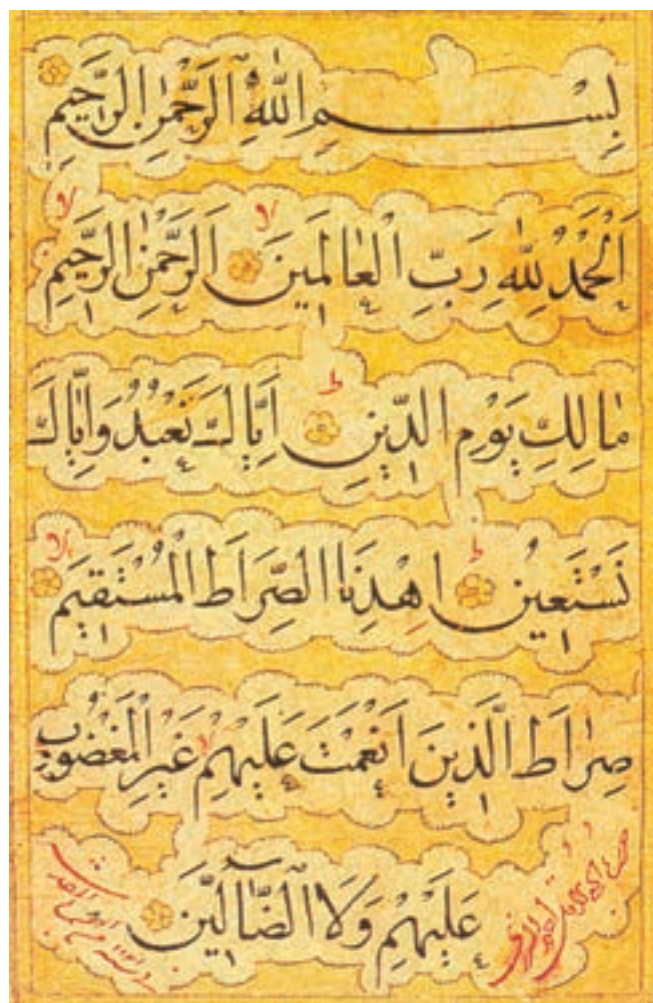 بِسْمِ اللّٰهِ الرَّحْمٰنِ الرَّحِيمِ
اَلْحَمْدُ لِلّٰهِ رَبِّ الْعَالَمِينَ اَلرَّحْمٰنِ الرَّحِيمِ
مَالِكِ يَوْمِ الدِّينِ اِيَّاكَ نَعْبُدُ وَاِيَّاكَ
نَسْتَعِينُ اِهْدِنَا الصِّرَاطَ الْمُسْتَقِيمَ
صِرَاطَ الَّذِينَ اَنْعَمْتَ عَلَيْهِمْ غَيْرِ الْمَغْضُوبِ
عَلَيْهِمْ وَلَا الضَّٓالِّينَ